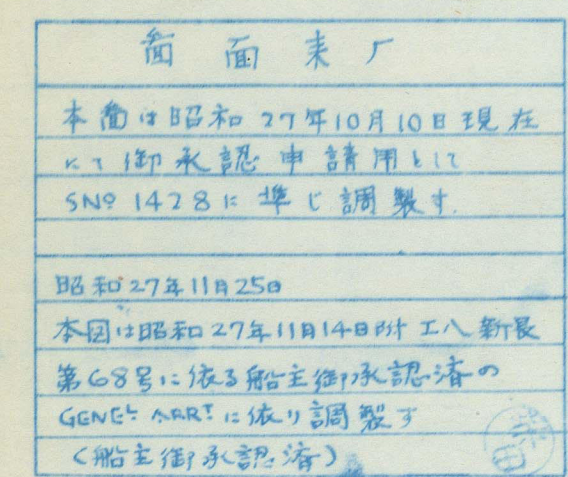 畨 面 来 歴
本畨は昭和27年10月10日現在
にて御承認申請用として
SNº 1428に準じ調製す.
昭和27年11月25日
本図は昭和27年11月14日附 工八新長
第68号に依る船主御承認済の
GENEᴸ ARRᵀに依り調製す
(船主御承認済)